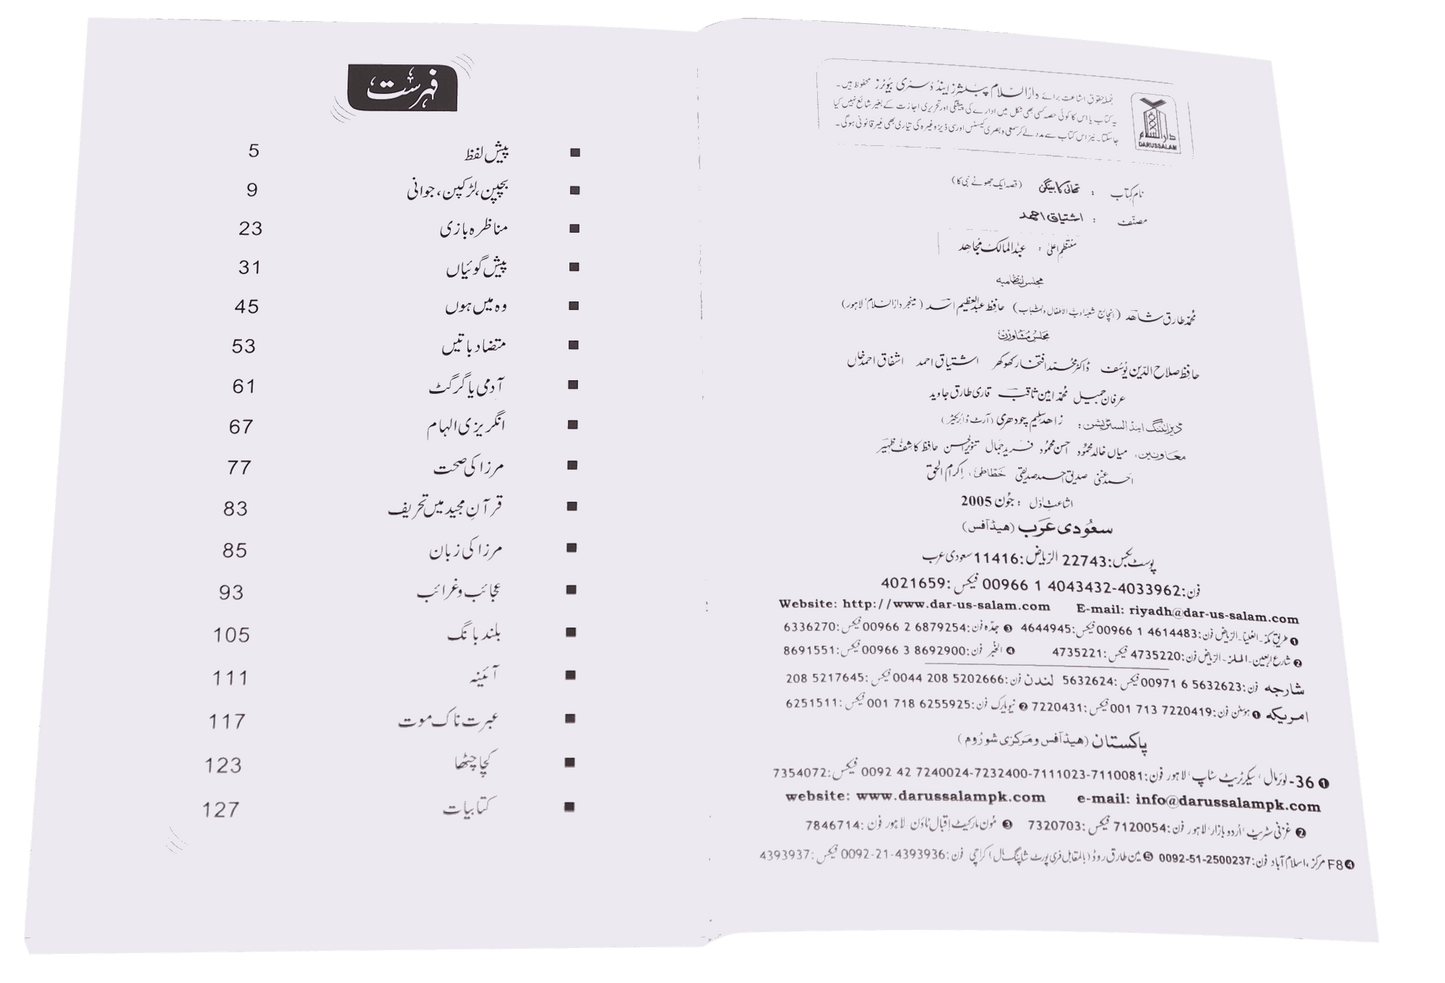 جملہ حقوق اشاعت برائے دارالسلام پبلشرز اینڈ ڈسٹری بیوٹرز محفوظ ہیں۔
یہ کتاب یا اس کا کوئی حصہ کسی بھی شکل میں ادارے کی پیشگی اور تحریری اجازت کے بغیر شائع نہیں کیا
جاسکتا۔ نیز اس کتاب سے مدد لے کر سمعی و بصری کیسٹس اور سی ڈیز وغیرہ کی تیاری بھی غیر قانونی ہوگی۔
دارالسلام
DARUSSALAM
نام کتاب : تھالی کا بینگن (قصہ ایک جھوٹے نبی کا)
مصنف : اشتیاق احمد
منتظم اعلیٰ : عبدالمالک مجاہد
مجلس انتظامیہ
محمد طارق شاہد (انچارج شعبہ ادب الاطفال والشباب) حافظ عبدالعظیم اسد (مینجر دارالسلام لاہور)
مجلس مشاورت
حافظ صلاح الدین یوسف ڈاکٹر محمد افتخار کھوکھر اشتیاق احمد اشفاق احمد خاں
عرفان جمیل محمد امین ثاقب قاری طارق جاوید
ڈیزائننگ اینڈ السٹریشن: زاہد سلیم چودھری (آرٹ ڈائریکٹر)
معاونین: میاں خالد محمود احسن محمود فرید جمال تنویر الحسن حافظ کاشف ظہیر
احمد غنی صدیق احمد صدیقی خطاطی: اکرام الحق
اشاعت اول : جون 2005
سعودی عرب (ہیڈ آفس)
پوسٹ بکس:22743 الریاض:11416 سعودی عرب
فون:00966 1 4043432-4033962 فیکس:4021659
Website: http://www.dar-us-salam.com E-mail: riyadh@dar-us-salam.com
❶ طریق مکہ۔العلیا۔الریاض فون:00966 1 4614483 فیکس:4644945 ❸ جدہ فون:00966 2 6879254 فیکس:6336270
❷ شارع اربعین۔الملز۔الریاض فون:4735220 فیکس:4735221 ❹ الخبر فون:00966 3 8692900 فیکس:8691551
شارجہ فون:00971 6 5632623 فیکس:5632624 لندن فون:0044 208 5202666 فیکس:208 5217645
امریکہ ❶ ہوسٹن فون:001 713 7220419 فیکس:7220431 ❷ نیویارک فون:001 718 6255925 فیکس:6251511
پاکستان (ہیڈ آفس و مرکزی شوروم)
❶ 36-لوئرمال، سیکرٹریٹ سٹاپ لاہور فون:0092 42 7240024-7232400-7111023-7110081 فیکس:7354072
website: www.darussalampk.com e-mail: info@darussalampk.com
❷ غزنی سٹریٹ اردو بازار لاہور فون:7120054 فیکس:7320703 ❸ مون مارکیٹ اقبال ٹاؤن لاہور فون:7846714
❹ F8 مرکز، اسلام آباد فون:0092-51-2500237 ❺ مین طارق روڈ (بالمقابل فری پورٹ شاپنگ مال) کراچی فون:0092-21-4393936 فیکس:4393937
فہرست
پیش لفظ 5
بچپن، لڑکپن، جوانی 9
مناظرہ بازی 23
پیش گوئیاں 31
وہ میں ہوں 45
متضاد باتیں 53
آدمی یا گرگٹ 61
انگریزی الہام 67
مرزا کی صحت 77
قرآن مجید میں تحریف 83
مرزا کی زبان 85
عجائب و غرائب 93
بلند بانگ 105
آئینہ 111
عبرت ناک موت 117
کچا چٹھا 123
کتابیات 127